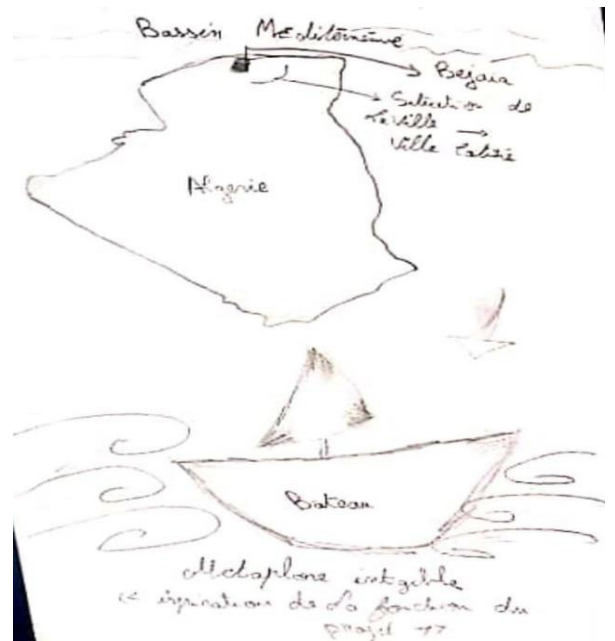 Bassin Méditéranéne
Bejaia
Situation de
la ville →
Ville cotière
Algerie
Bateau
Métaphore intégible
<< ispiration de la fonction du
projet >>